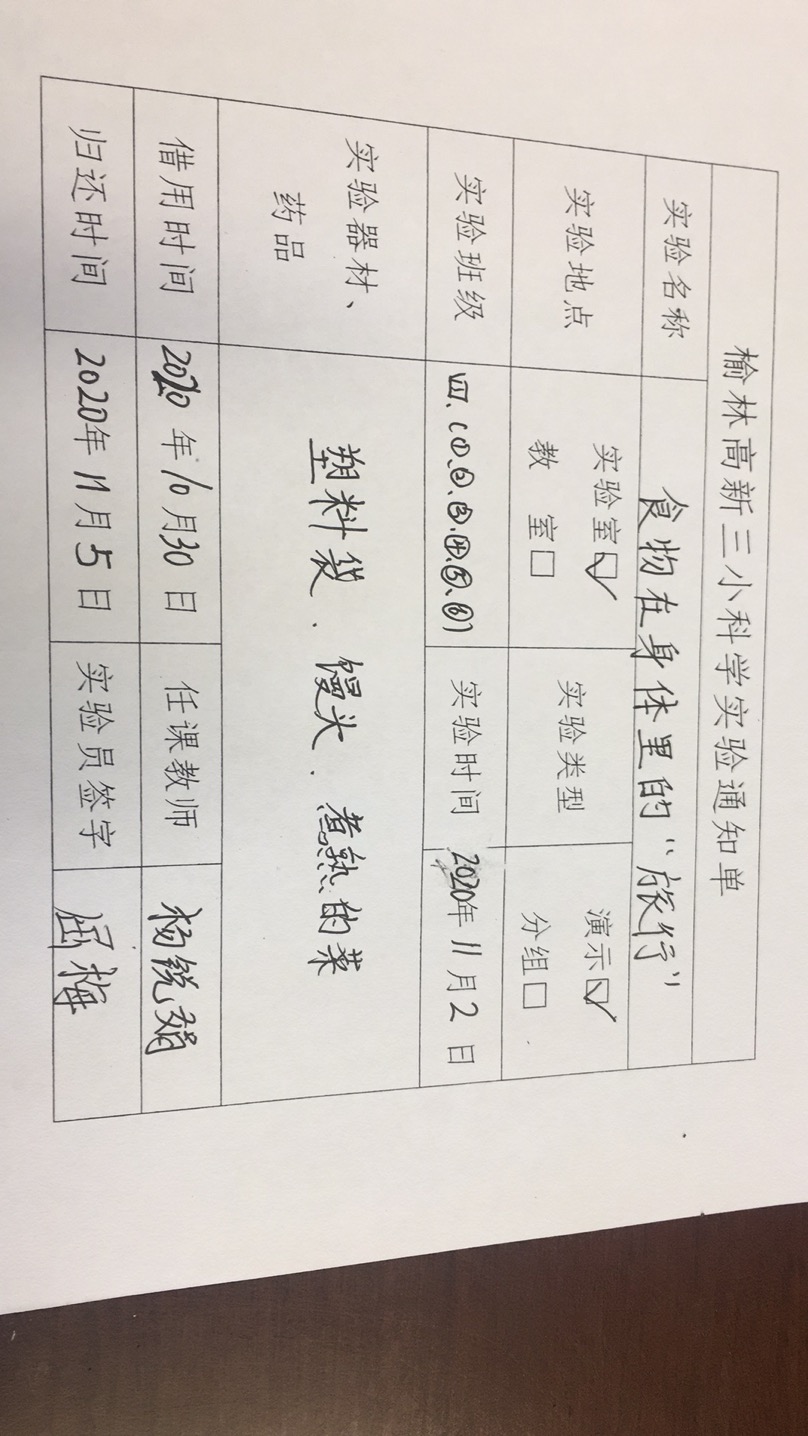 榆林高新三小科学实验通知单
实验名称 食物在身体里的“旅行”
实验地点 实验室☑ 教 室□ 实验类型 演示☑ 分组□
实验班级 四.(①.②.③.④.⑤.⑥) 实验时间 2020年11月2日
实验器材、药品 塑料袋.馒头.煮熟的菜
借用时间 2020年10月30日 任课教师 杨锐娟
归还时间 2020年11月5日 实验员签字 屈梅